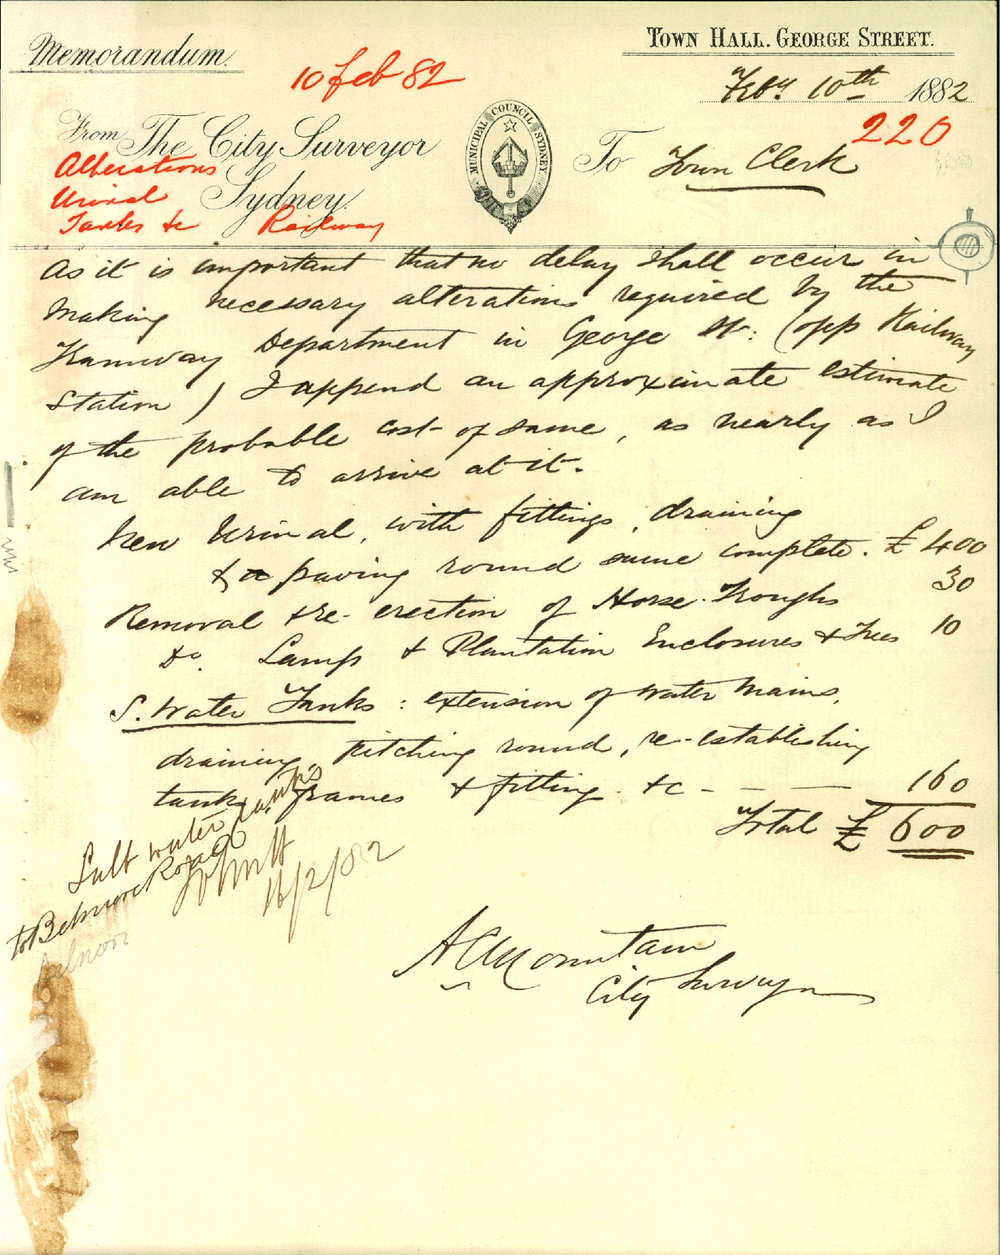 Memorandum.
TOWN HALL. GEORGE STREET.
10 Feb 82
Feby 10th 1882
220
From The City Surveyor
Sydney.
MUNICIPAL COUNCIL SYDNEY
To Town Clerk
Alterations
Urinal
Tanks &c Railway
As it is important that no delay shall occur in
making necessary alterations required by the
Tramway Department in George St: (opp Railway
Station) I append an approximate estimate
of the probable cost of same, as nearly as I
am able to arrive at it.
New Urinal, with fittings, draining
& paving round same complete. £400
Removal & re-erection of Horse-Troughs 30
Do. Lamps & Plantation Enclosures & Trees 10
S. Water Tanks: extension of water mains,
draining, pitching round, re-establishing
tanks, frames & fitting &c - - - 160
Total £600
Salt water tanks
to Belmore Road
16/2/82
ACMountain
City Surveyor